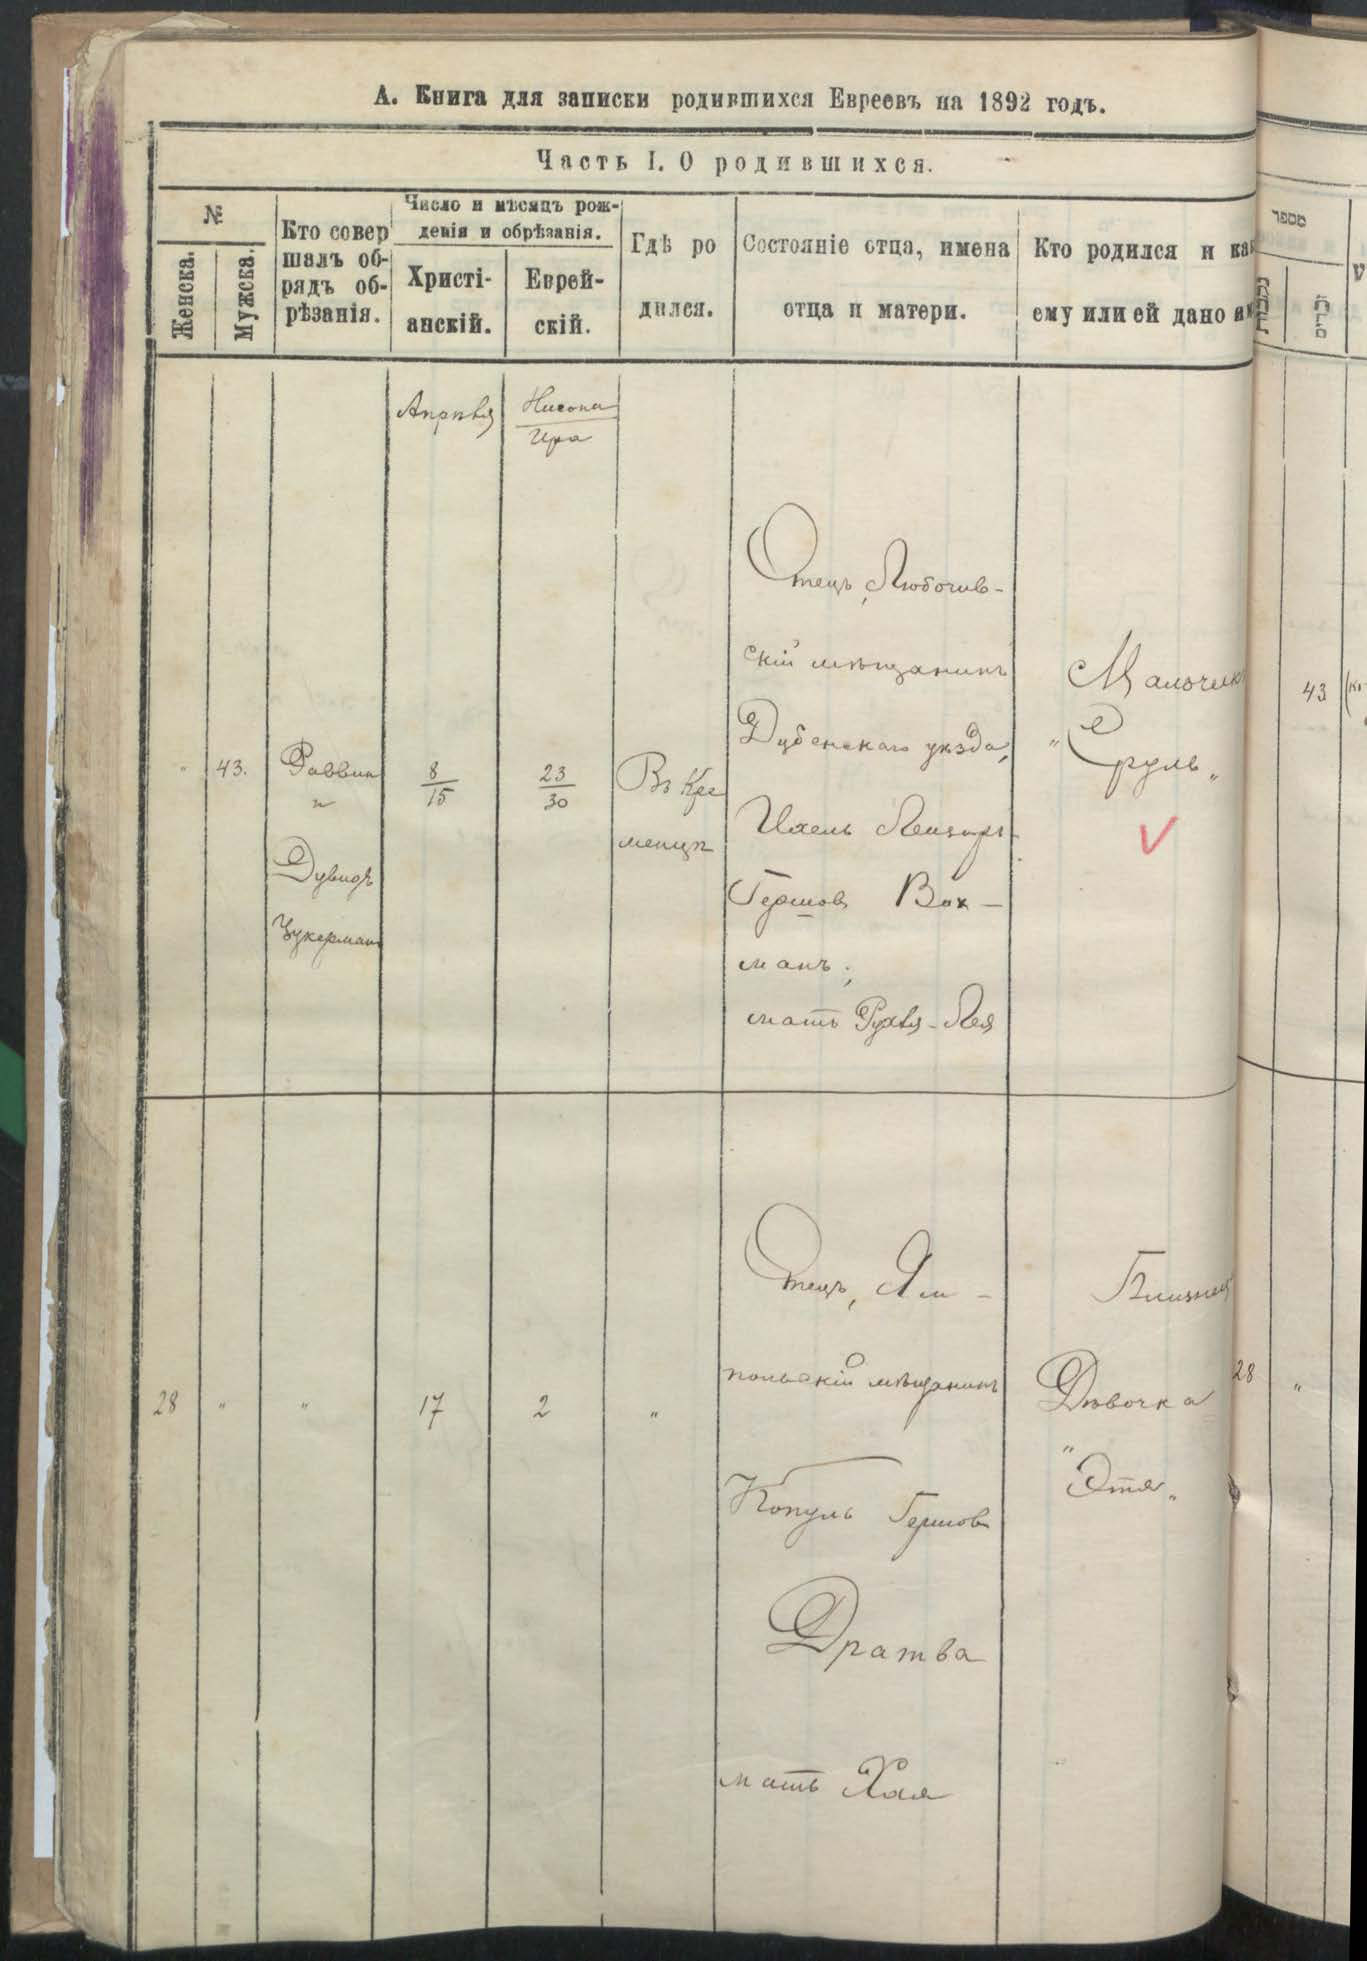 А. Книга для записки родившихся Евреевъ на 1892 годъ.
Часть I. О родившихся.
№
Женска.
Мужска.
Кто совер
шалъ об-
рядъ об-
рѣзанія.
Число и мѣсяцъ рож-
денія и обрѣзанія.
Христі-
анскій.
Еврей-
скій.
Гдѣ ро
дился.
Состояніе отца, имена
отца и матери.
Кто родился и как
ему или ей дано им
מספר
נקבות
זכרים
Апрѣля
Нисона
Ира
" 43.
Раввин
и
Дувидъ
Цукерман
8
15
23
30
Въ Кре
менцѣ
Отецъ,
скій мѣщанинъ
Дубенскаго уѣзда,
Ихель Лейзоръ
Гершов Вак-
манъ;
мать Рухля-Лея
Мальчикъ
"Сруль"
43
28 " "
17
2
"
Отецъ, Ям-
польскій мѣщанинъ
Копуль Гершов
Дратва
мать Хая
Близнец
Дѣвочка
"Этя"
28 "